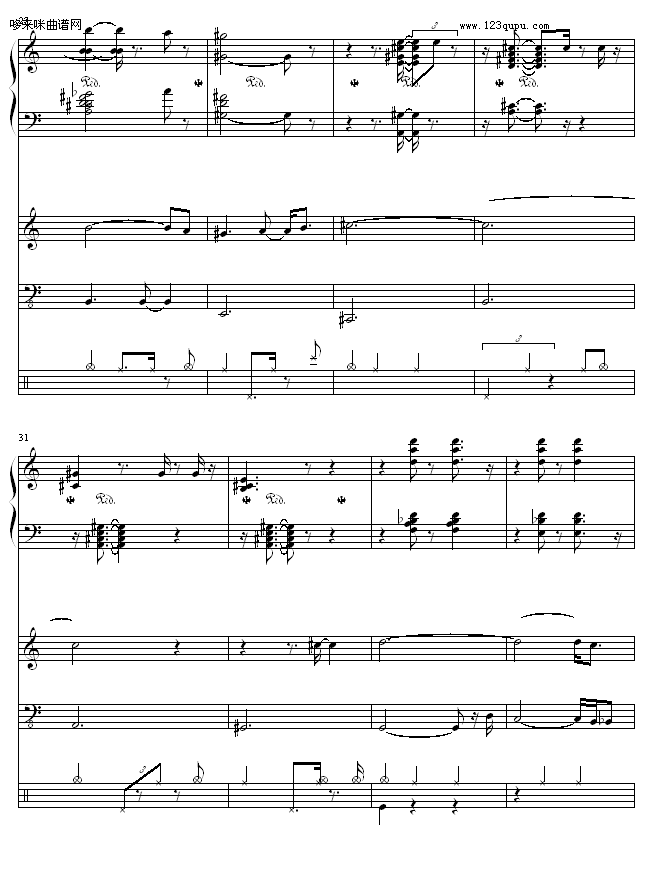 哆来咪曲谱网
www.123qupu.com
Ped.
Ped.
Ped.
3
31
Ped.
Ped.
3